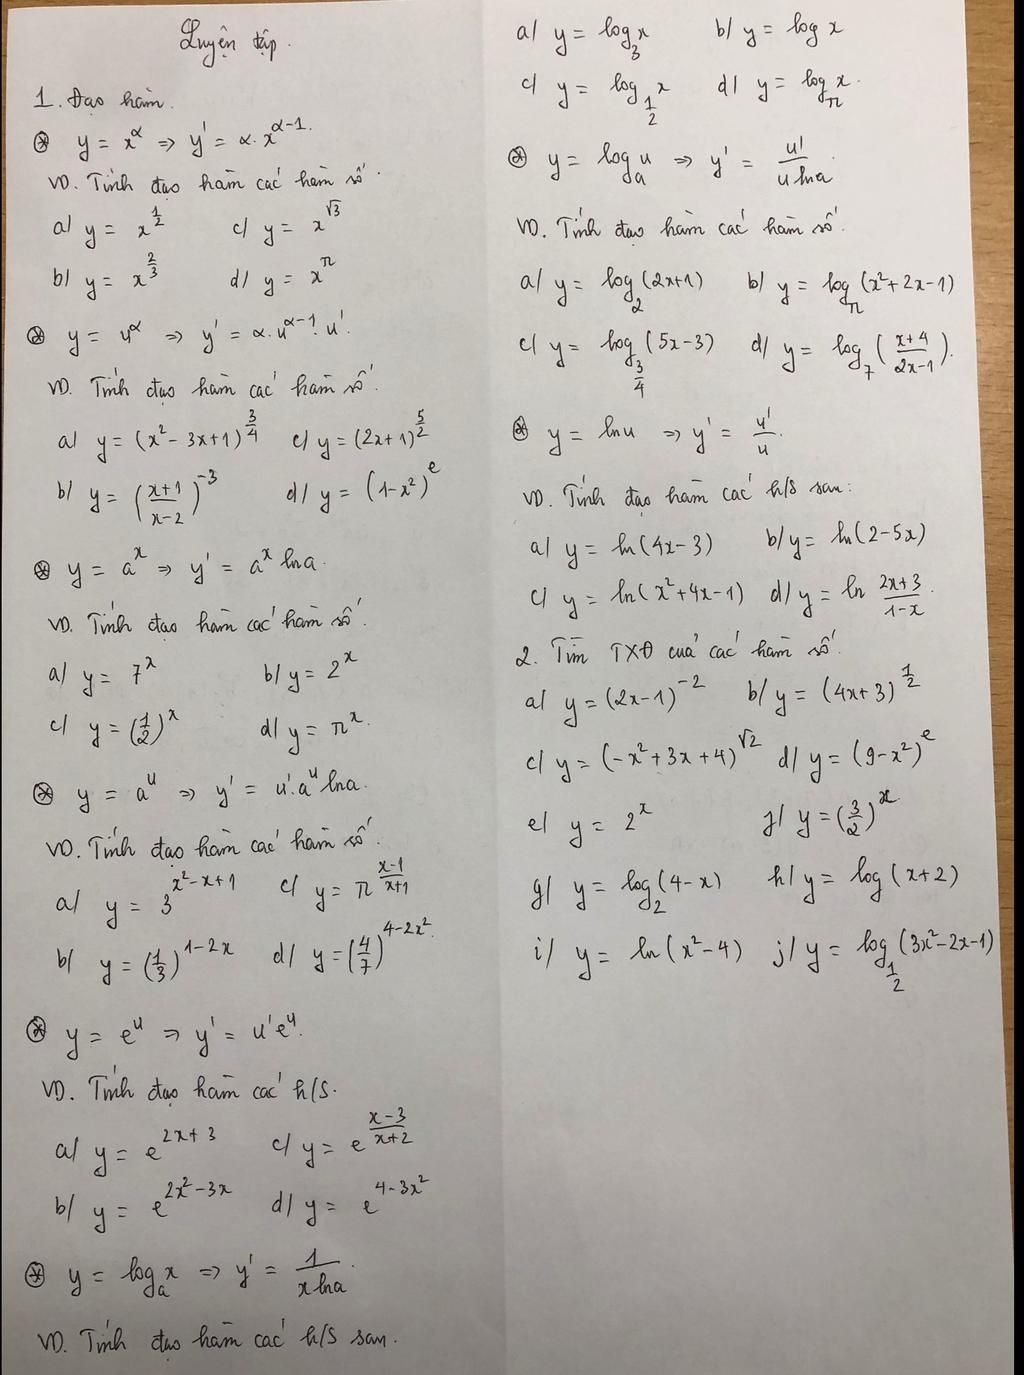 Luyện tập.
1. Đạo hàm.
⊛ y = x^α ⇒ y' = α.x^(α-1).
VD. Tính đạo hàm các hàm số.
a/ y = x^(1/2) c/ y = x^(√3)
b/ y = x^(2/3) d/ y = x^π
⊛ y = u^α ⇒ y' = α.u^(α-1).u'.
VD. Tính đạo hàm các hàm số.
a/ y = (x² - 3x+1)^(3/4) c/ y = (2x+1)^(5/2)
b/ y = ((x+1)/(x-2))^(-3) d/ y = (1-x²)^e
⊛ y = a^x ⇒ y' = a^x lna.
VD. Tính đạo hàm các hàm số.
a/ y = 7^x b/ y = 2^x
c/ y = (1/2)^x d/ y = π^x.
⊛ y = a^u ⇒ y' = u'.a^u lna.
VD. Tính đạo hàm các hàm số.
a/ y = 3^(x²-x+1) c/ y = π^((x-1)/(x+1))
b/ y = (1/3)^(1-2x) d/ y = (4/7)^(4-2x²).
⊛ y = e^u ⇒ y' = u'e^u.
VD. Tính đạo hàm các h/s.
a/ y = e^(2x+3) c/ y = e^((x-3)/(x+2))
b/ y = e^(2x²-3x) d/ y = e^(4-3x²)
⊛ y = log_a x ⇒ y' = 1/(x lna).
VD. Tính đạo hàm các h/s sau.
a/ y = log_3 x b/ y = log x
c/ y = log_(1/2) x d/ y = log_π x.
⊛ y = log_a u ⇒ y' = u'/(u lna)
VD. Tính đạo hàm các hàm số.
a/ y = log_2 (2x+1) b/ y = log_π (x²+2x-1)
c/ y = log_(3/4) (5x-3) d/ y = log_7 ((x+4)/(2x-1)).
⊛ y = lnu ⇒ y' = u'/u.
VD. Tính đạo hàm các h/s sau:
a/ y = ln(4x-3) b/ y = ln(2-5x)
c/ y = ln(x²+4x-1) d/ y = ln (2x+3)/(1-x).
2. Tìm TXĐ của các hàm số.
a/ y = (2x-1)^(-2) b/ y = (4x+3)^(1/2)
c/ y = (-x²+3x+4)^(√2) d/ y = (9-x²)^e
e/ y = 2^x f/ y = (3/2)^x
g/ y = log_2 (4-x) h/ y = log(x+2)
i/ y = ln(x²-4) j/ y = log_(1/2) (3x²-2x-1)